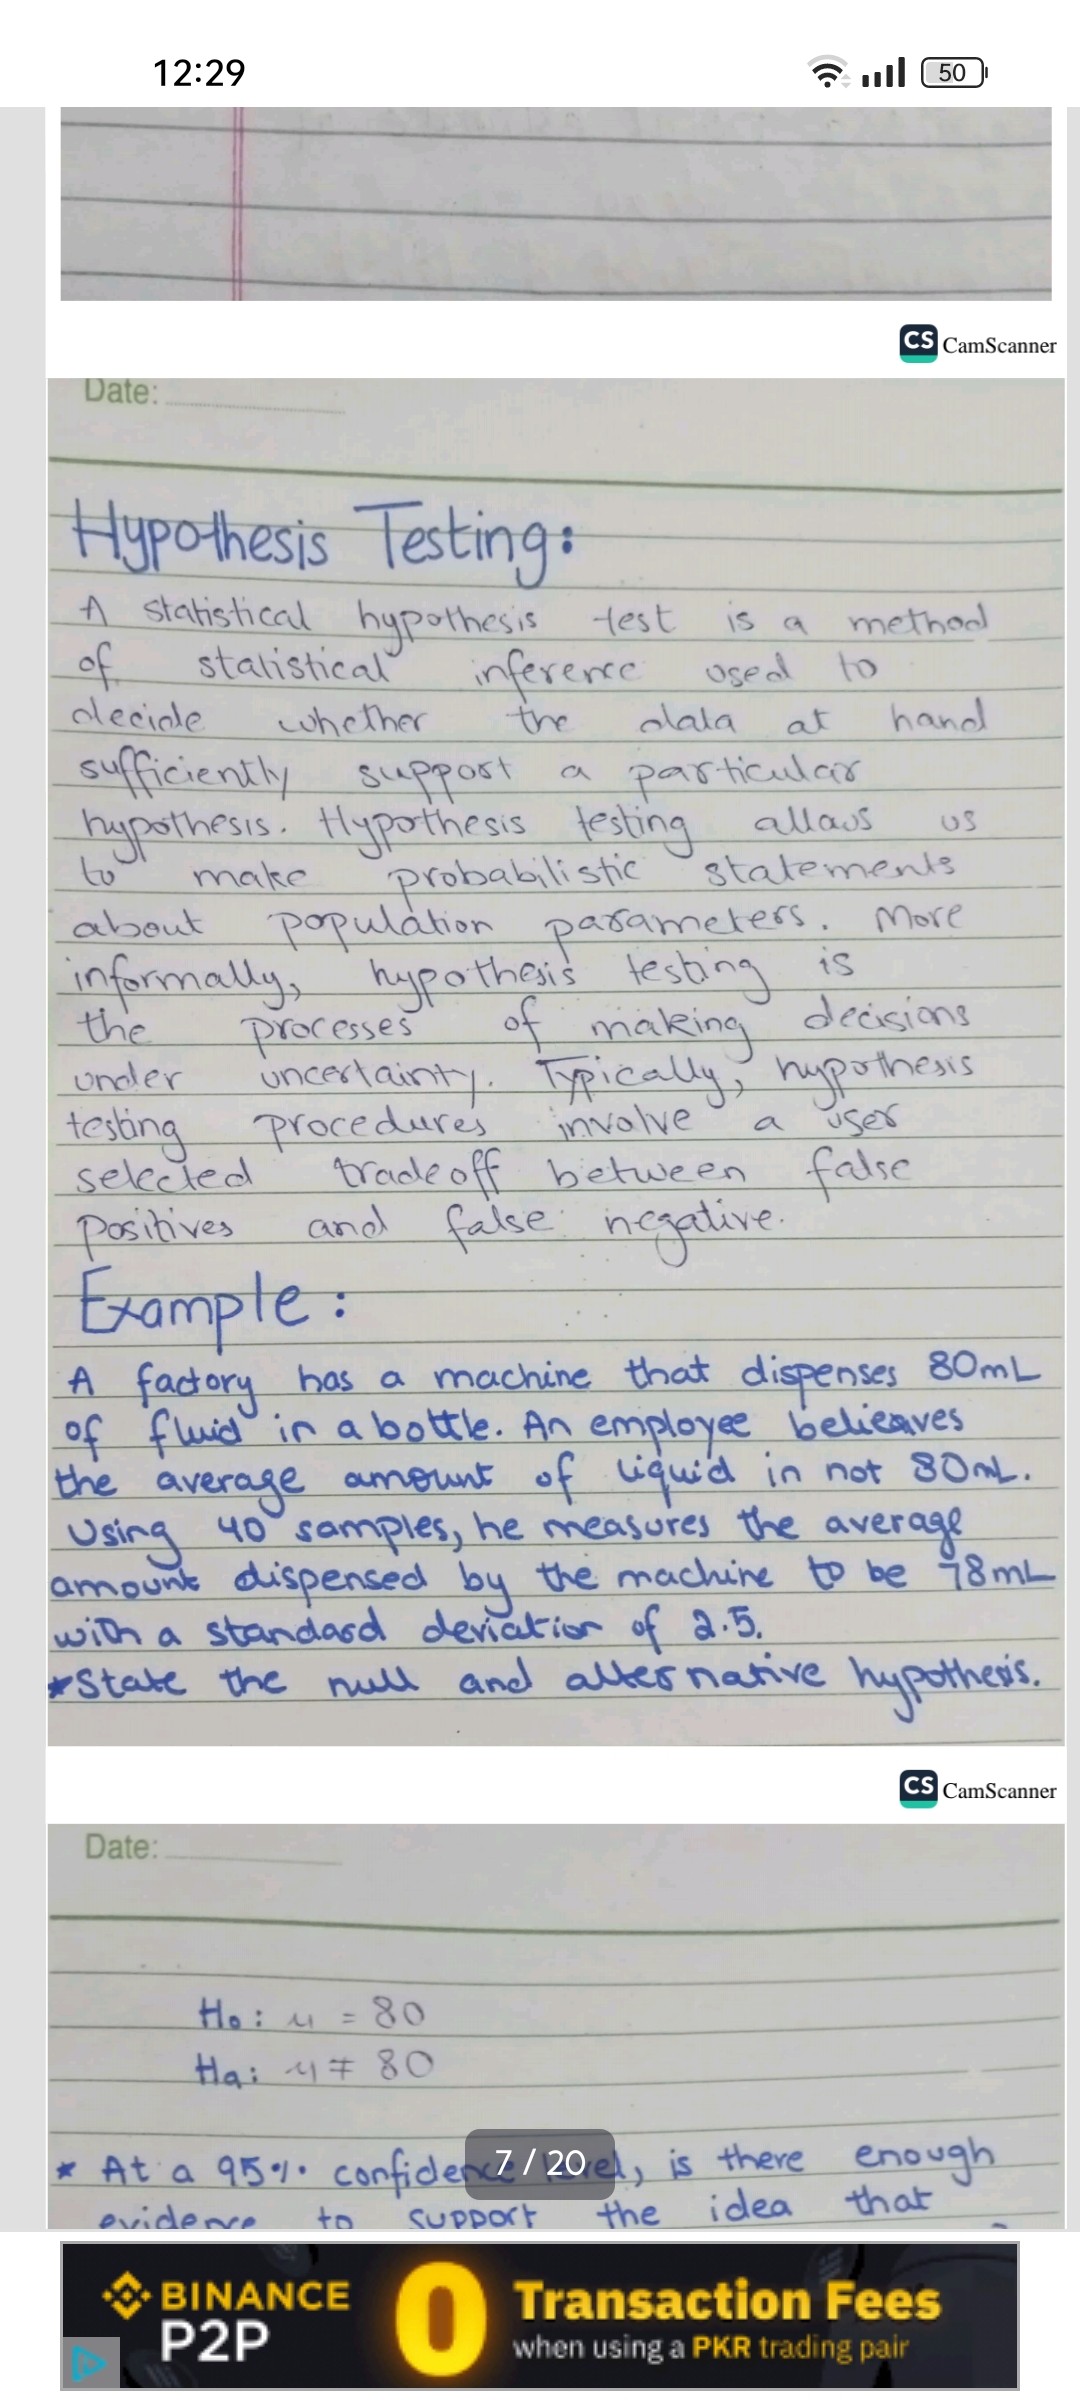 12:29
50
CS CamScanner
Date:
Hypothesis Testing:
A statistical hypothesis test is a method
of statistical inference used to
decide whether the data at hand
sufficiently support a particular
hypothesis. Hypothesis testing allows us
to make probabilistic statements
about population parameters. More
informally, hypothesis testing is
the processes of making decisions
under uncertainty. Typically, hypothesis
testing procedures involve a user
selected tradeoff between false
positives and false negative.
Example:
A factory has a machine that dispenses 80mL
of fluid in a bottle. An employee belieaves
the average amount of liquid in not 80mL.
Using 40 samples, he measures the average
amount dispensed by the machine to be 78mL
with a standard deviation of 2.5.
*State the null and alternative hypothesis.
CS CamScanner
Date:
Ho: μ = 80
Ha: μ ≠ 80
* At a 95% confidence level, is there enough
7 / 20
evidence to support the idea that
BINANCE
P2P
0 Transaction Fees
when using a PKR trading pair